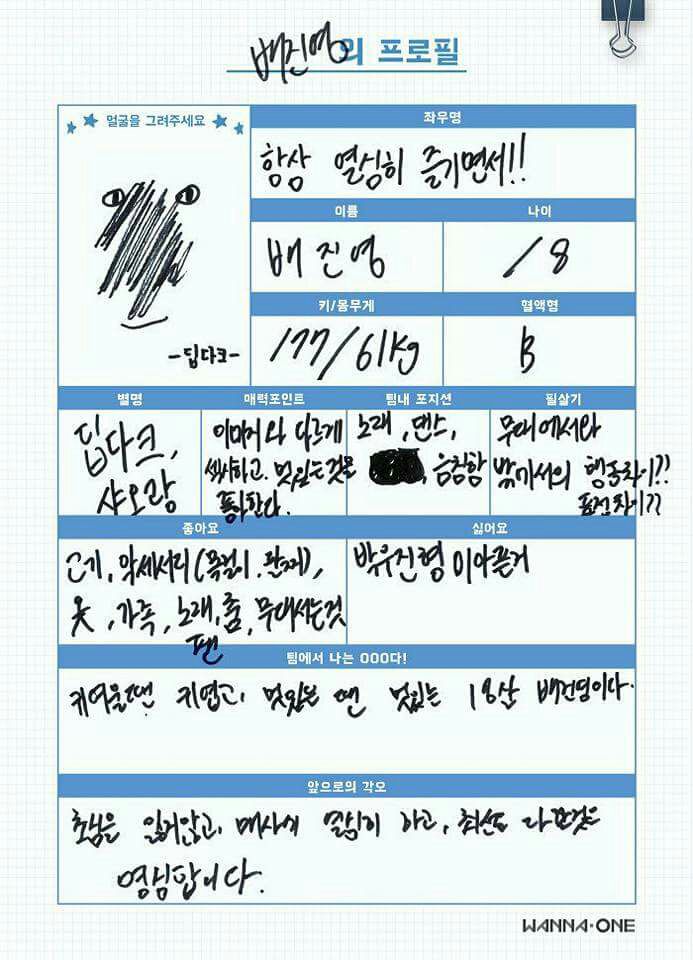 배진영의 프로필
멀굴을 그려주세요
-딥다크-
좌우명
항상 열심히 즐기면서!!
이름
나이
배진영
18
키/몸무게
혈액형
177/61kg
B
별명
매력포인트
팀내 포지션
필살기
딥다크,
샤오랑
이미지와 다르게
섹시하고, 멋있는것을
좋아한다.
노래, 댄스,
, 음침함
무대에서와
밖에서의 행동차이??
표정차이??
좋아요
싫어요
고기, 악세서리(목걸이, 반지),
옷, 가족, 노래, 춤, 무대서는것
팬
박우진형이아픈거
팀에서 나는 OOO다!
귀여울땐 귀엽고, 멋있을 땐 멋있는 18살 배진영이다.
앞으로의 각오
초심을 잃지않고, 매사에 열심히 하고, 최선을
WANNA·ONE